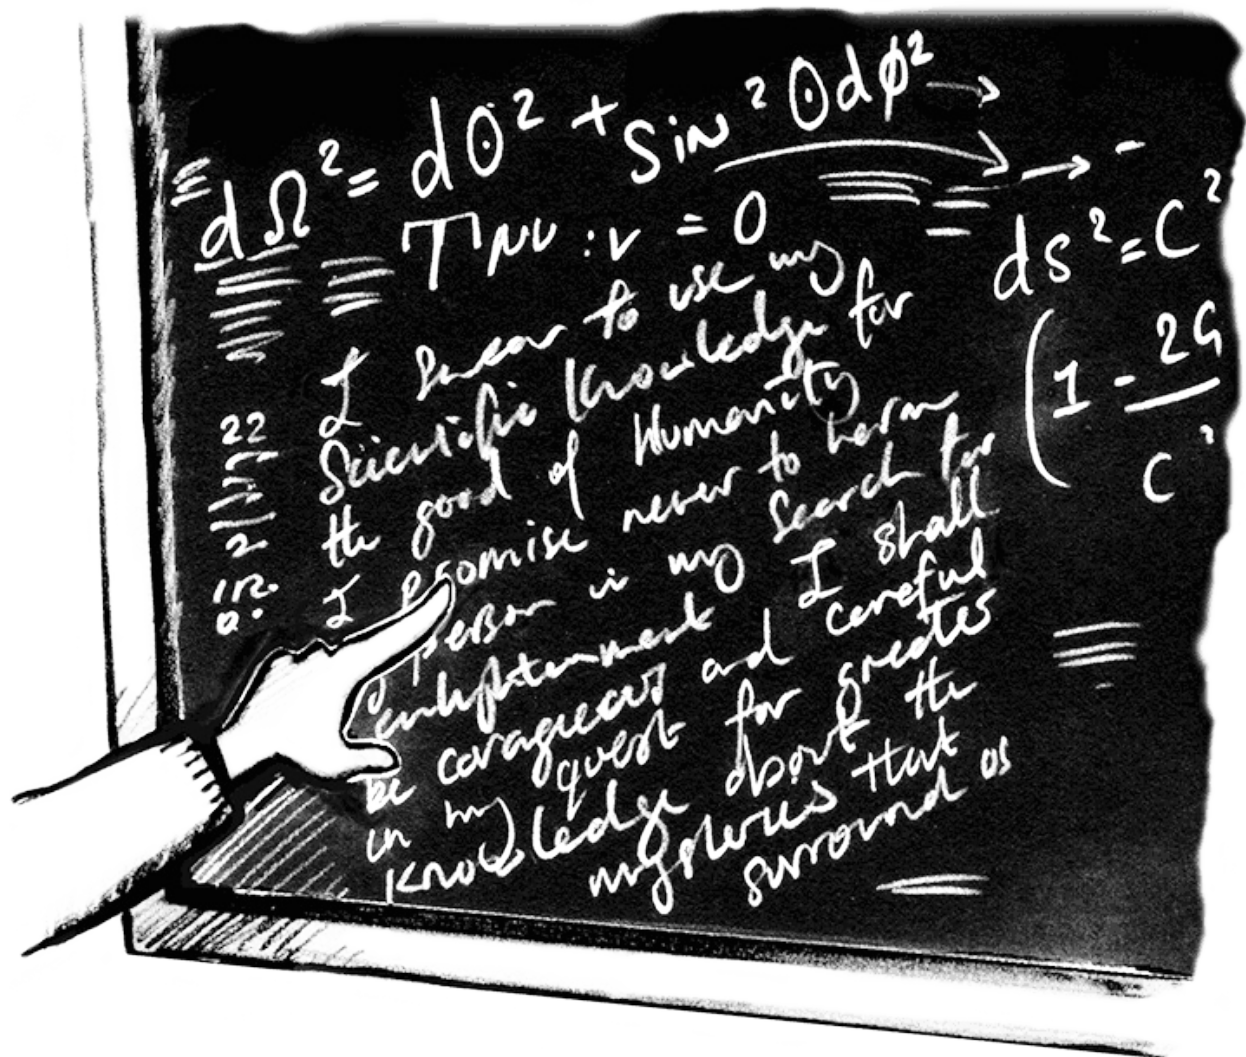 dΩ² = dθ² + sin²θdϕ² →
→ -
Tμν:ν = 0
ds² = C²
(1 - 2G
C²
I swear to use my
Scientific Knowledge for
the good of Humanity
I promise never to harm
person in my search for
enlightenment I shall
be coragueous and careful
in my quest for greates
Knowledge about the
mysteries that
surround us
22